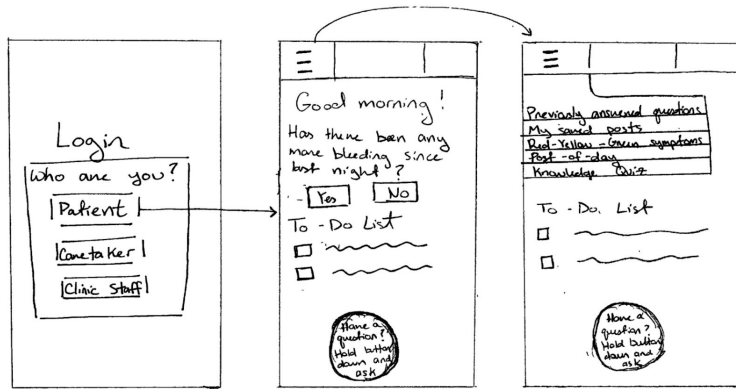 Login
Who are you?
Patient
Caretaker
Clinic Staff
Good morning!
Has there been any
more bleeding since
last night?
Yes
No
To-Do List
Have a
question?
Hold button
down and
ask
Previously answered questions
My saved posts
Red-Yellow-Green symptoms
Post-of-day
Knowledge Quiz
To-Do List
Have a
question?
Hold button
down and
ask